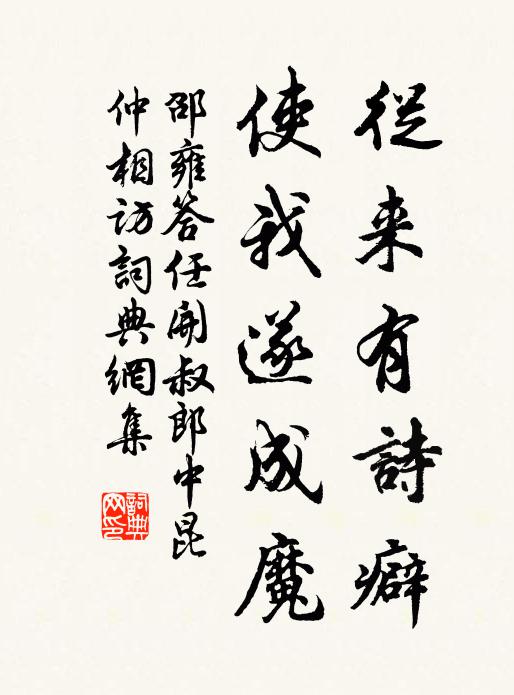 從来有詩癖
使我遂成魔
邵雍答任開叔郎中昆
仲相訪詞典網集
詞典
网印